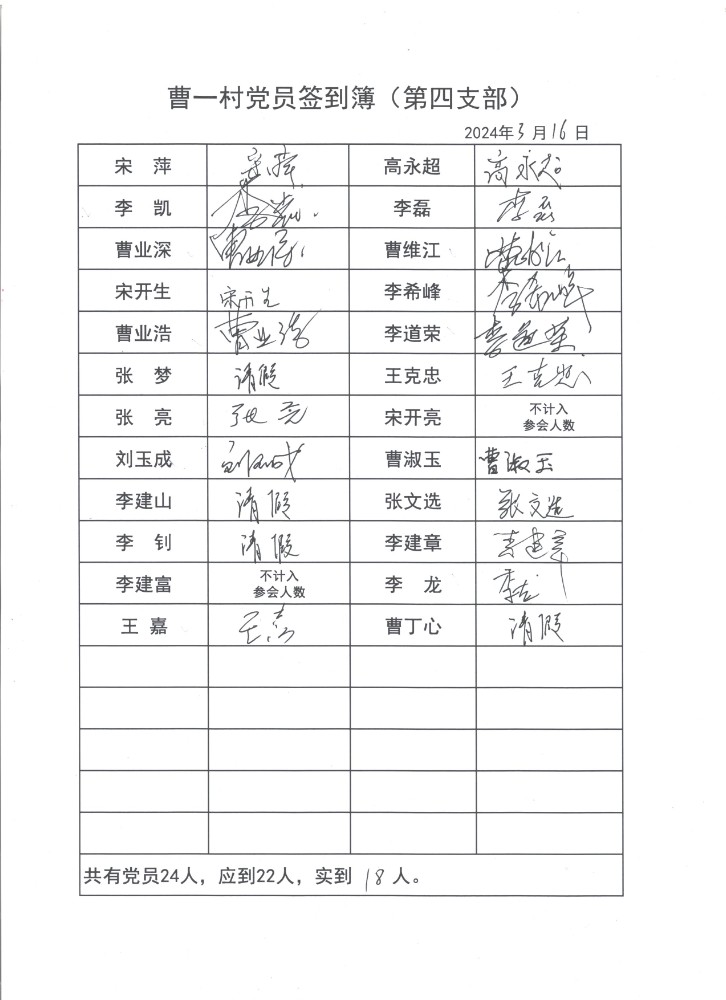 曹一村党员签到簿（第四支部）
2024年3月16日
宋 萍 宋萍 高永超 高永超
李 凯 李凯 李磊 李磊
曹业深 曹业深 曹维江 曹维江
宋开生 宋开生 李希峰 李希峰
曹业浩 曹业浩 李道荣 李道荣
张 梦 请假 王克忠 王克忠
张 亮 张亮 宋开亮 不计入
参会人数
刘玉成 刘玉成 曹淑玉 曹淑玉
李建山 请假 张文选 张文选
李 钊 请假 李建章 李建章
李建富 不计入
参会人数
李 龙 李龙
王 嘉 王嘉 曹丁心 请假
共有党员24人，应到22人，实到 18 人。